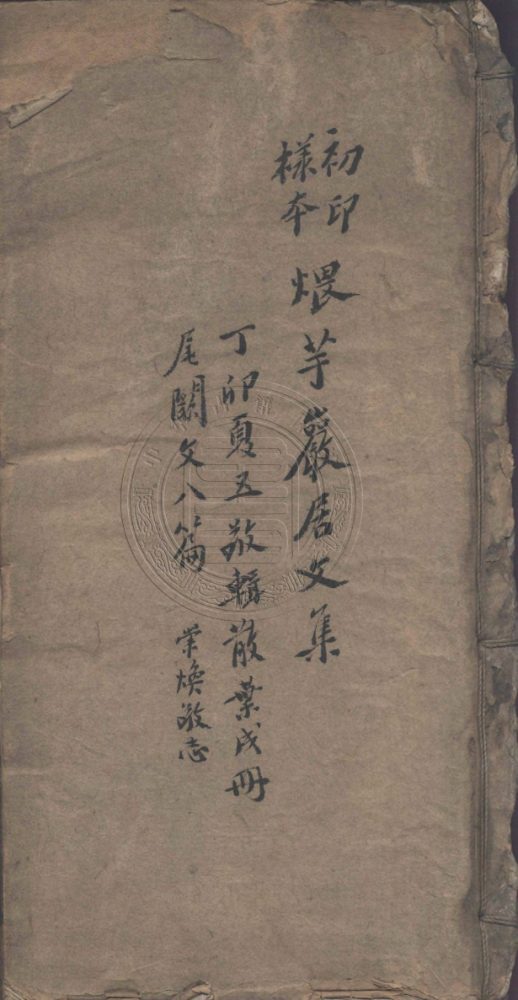 初印
樣本
煨芋巖居文集
丁卯夏五敬輯散葉成冊
尾闕文八篇
煥敬志